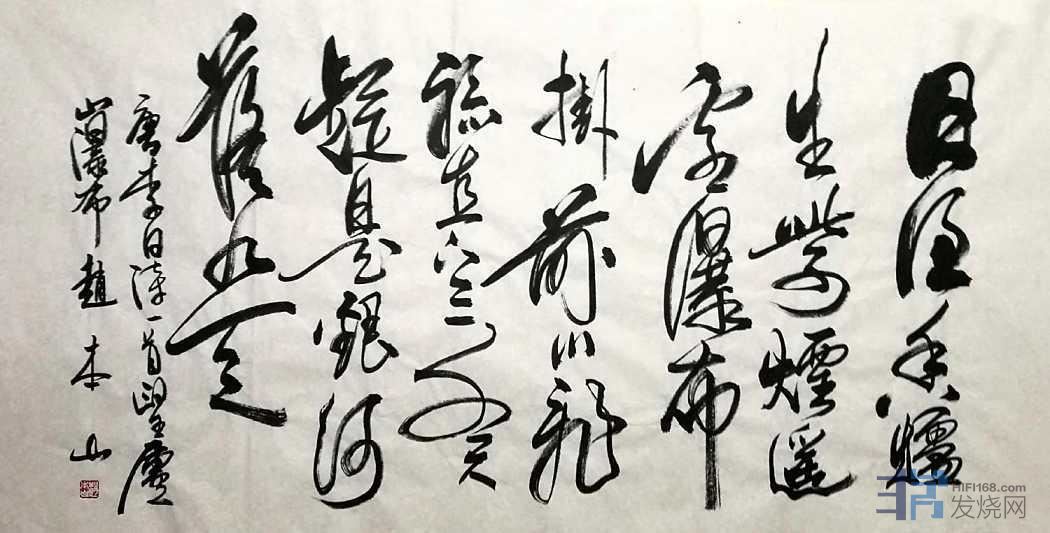 日照香爐
生紫煙遙
看瀑布
掛前川飛
流直下三千尺
疑是銀河
落九天
唐李白詩一首望廬
山瀑布 趙本山
HIFI168.com
发烧网